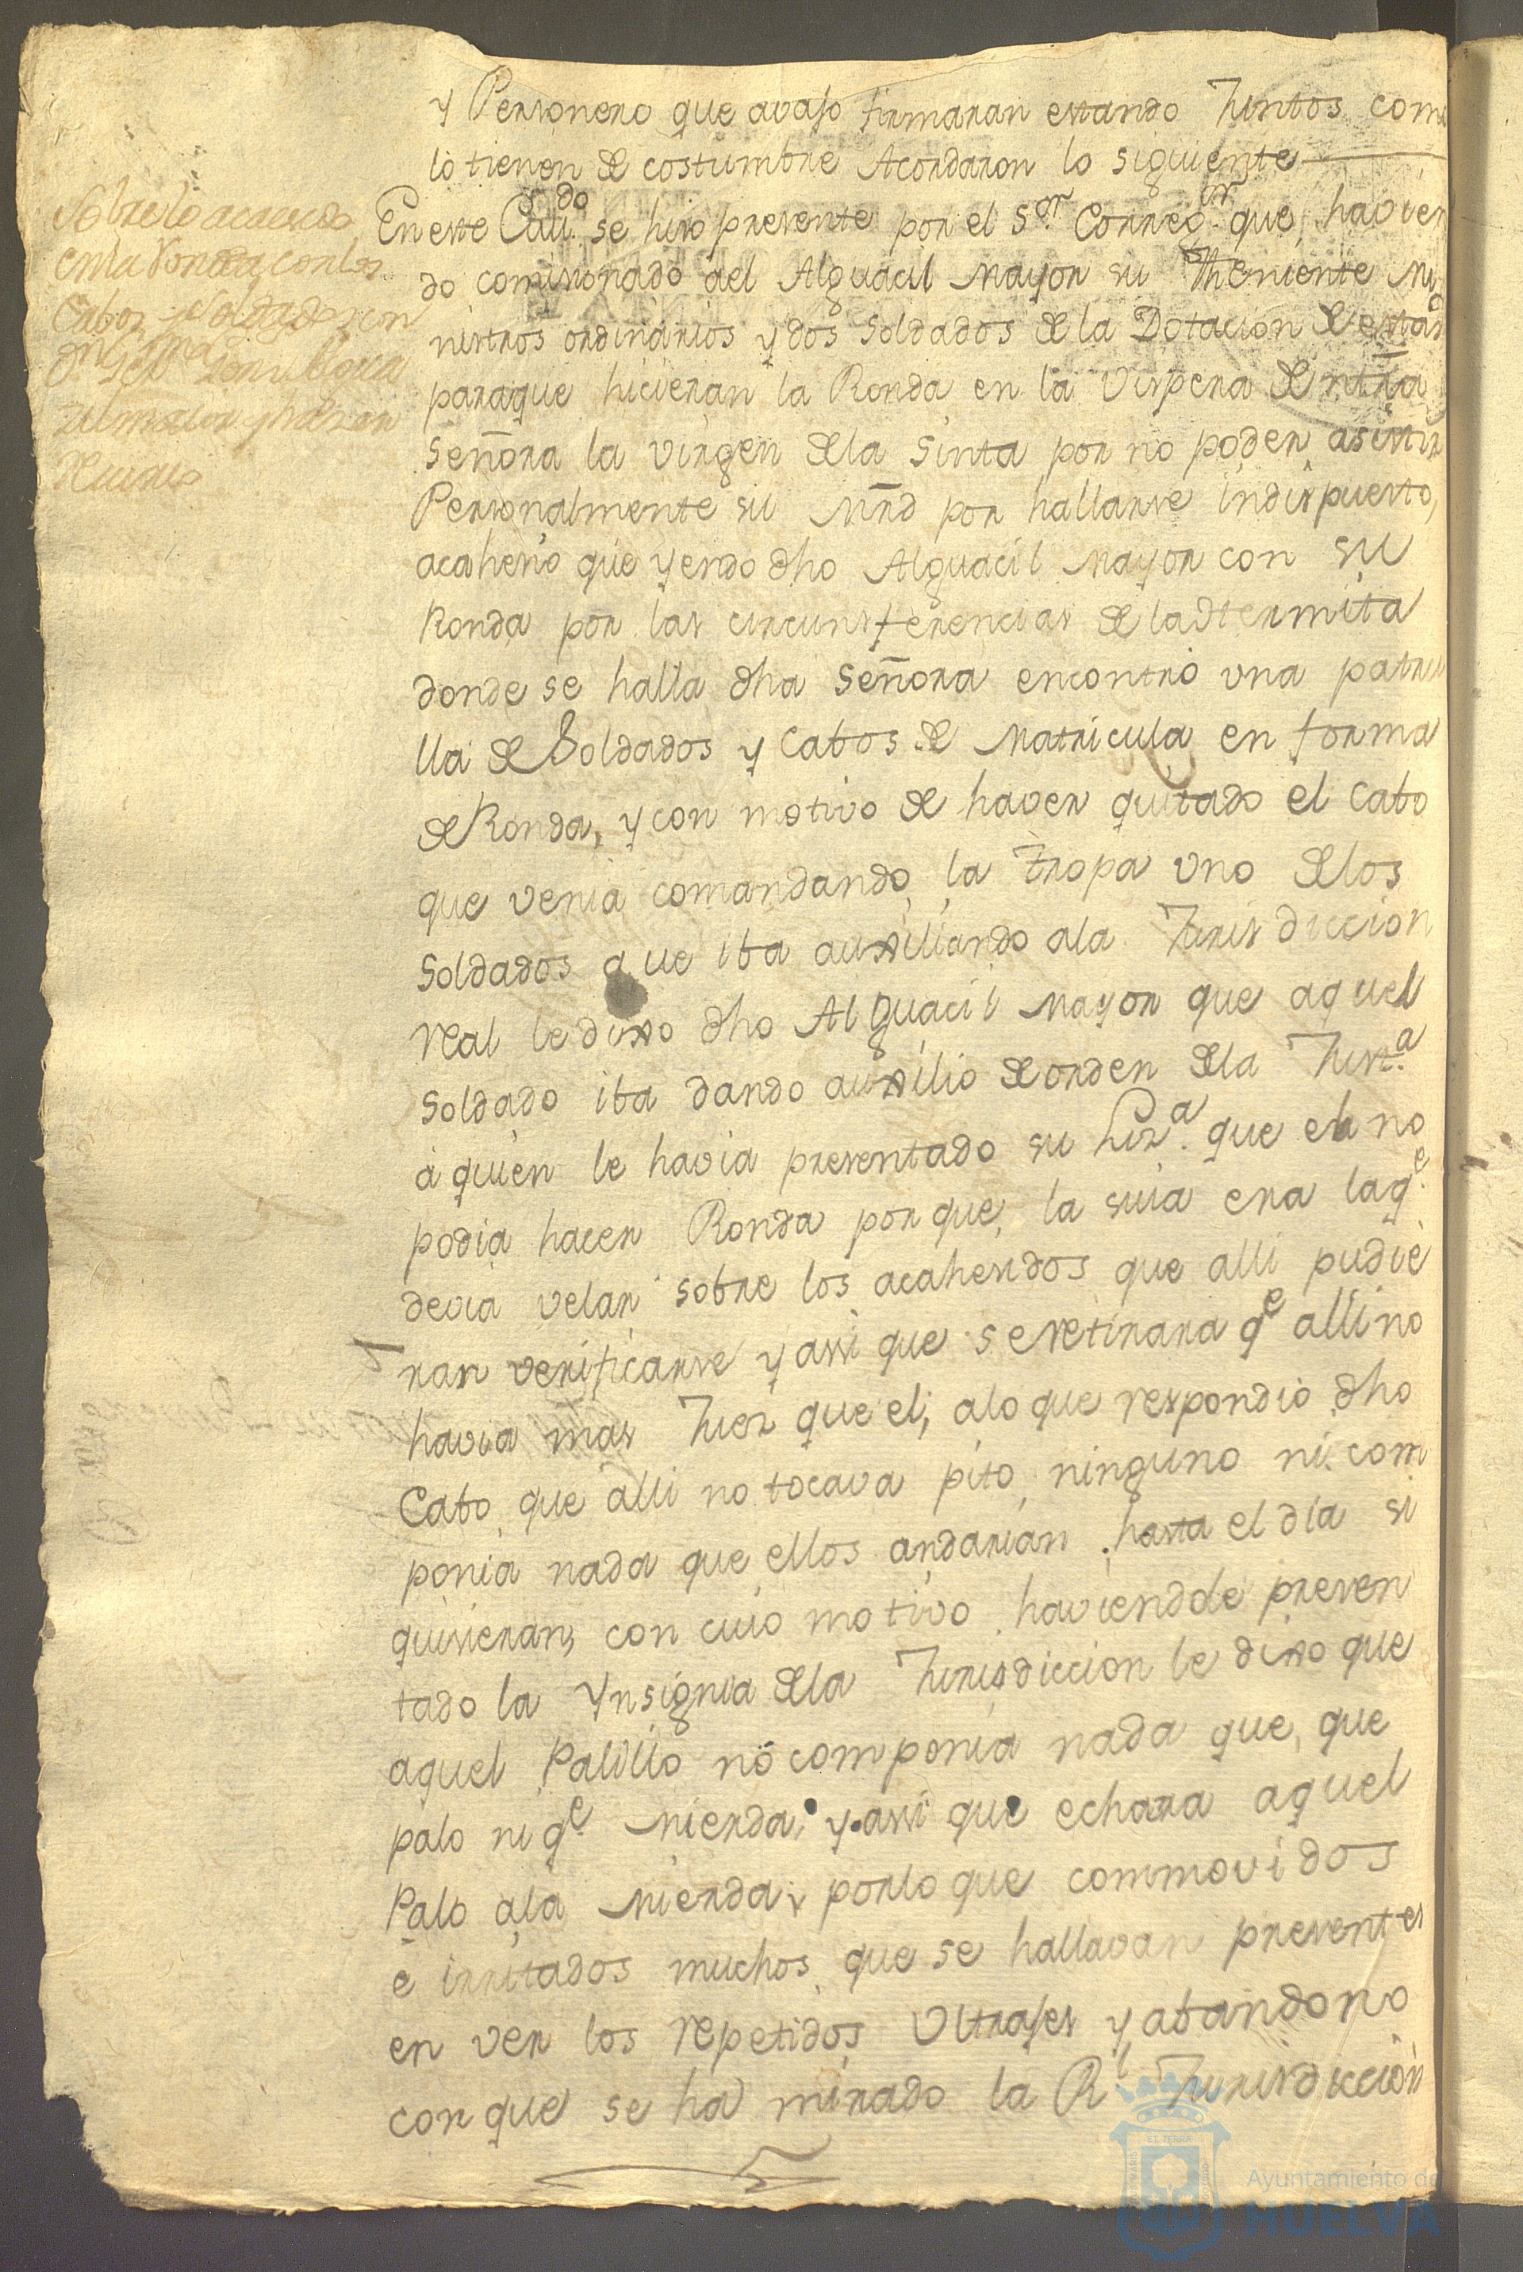 y Personero que avajo firmaran estando Juntos como
lo tienen de costumbre Acordaron lo siguiente
Sobre lo acaecido
en la Ronda con los
Cabos y Soldados
En este Cauildo se hiso presente por el Sor. Corregor. que havien
do comisionado del Alguacil Mayor su Theniente Mi
nistros ordinarios y dos Soldados de la Dotacion de esta
paraque hicieran la Ronda en la Vispera de ntra
Señora la Virgen de la Sinta por no poder asistir
Personalmente su Mrd por hallarse indispuesto,
acahesio que yendo dho Alguacil Mayor con su
Ronda por las circunsferencias de la dtermita
donde se halla dha Señora encontró una patru
lla de Soldados y Cabos de Matricula en forma
de Ronda, y con motivo de haver quitado el Cabo
que venia comandando la Tropa uno de los
Soldados que iba auxiliando ala Jurisdiccion
real le dixo dho Alguacil Mayor que aquel
Soldado iba dando auxilio de orden de la Justa.
á quien le havia presentado su Liza. que el no
podia hacer Ronda porque la suia era la qe.
devia velar sobre los acahesidos que alli pudie
ran verificarse y assi que se retirara qe alli no
havia mas Juez que el; alo que respondio dho
Cabo que alli no tocava pito ninguno ni com
ponia nada que ellos andarian hasta el dia si
quisieran, con cuio motivo haviendole presen
tado la Ynsignia de la Jurisdiccion le dixo que
aquel Palillo no componia nada que, que
palo ni qe Mierda, y assi que echara aquel
Palo ala Mierda, por lo que commovidos
e irritados muchos que se hallavan presentes
en ver los repetidos Ultrajes y abandono
con que se há mirado la Rl Jurisdiccion
Ayuntamiento de
HUELVA